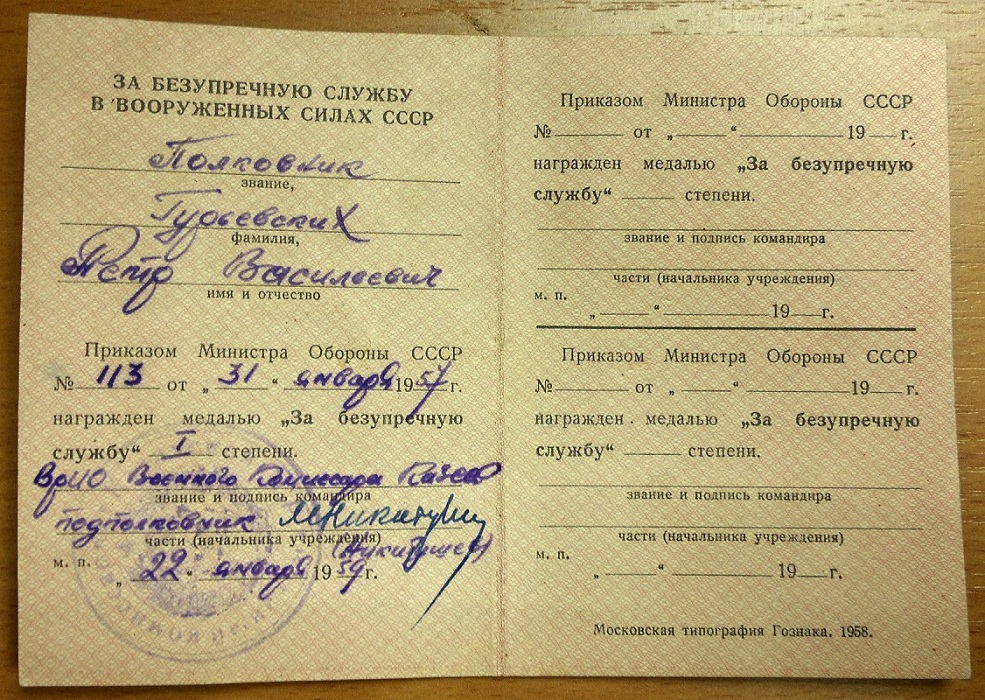 ЗА БЕЗУПРЕЧНУЮ СЛУЖБУ
В ВООРУЖЕННЫХ СИЛАХ СССР
Полковник
звание,
Гурьевских
фамилия,
Петр Васильевич
имя и отчество
Приказом Министра Обороны СССР
№ 113 от „ 31 “ января 1957 г.
награжден медалью „За безупречную
службу“ I степени.
ВрИО Военного Комиссара
звание и подпись командира
подполковник
части (начальника учреждения)
(Никитушев)
м. п.
„ 22 “ января 1959 г.
Приказом Министра Обороны СССР
№ от „ “ 19 г.
награжден медалью „За безупречную
службу“ степени.
звание и подпись командира
части (начальника учреждения)
м. п.
„ “ 19 г.
Приказом Министра Обороны СССР
№ от „ “ 19 г.
награжден медалью „За безупречную
службу“ степени.
звание и подпись командира
части (начальника учреждения)
м. п.
„ “ 19 г.
Московская типография Гознака. 1958.